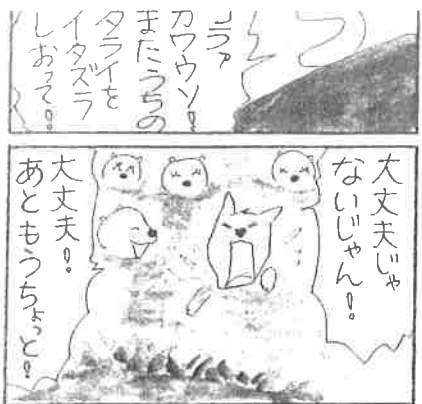 コラァ
カワウソ！
またうちの
タライを
イタズラ
しおって！
大丈夫じゃ
ないじゃん！
大丈夫！
あともうちょっと！